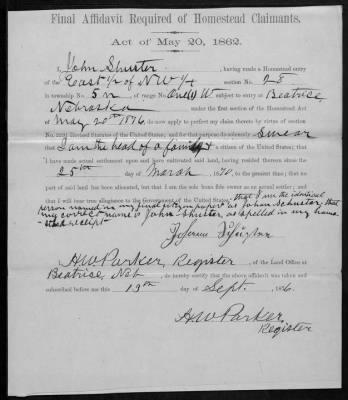 Final Affidavit Required of Homestead Claimants.
Act of May 20, 1862.
I, John Shuster, having made a Homestead entry
of the East ½ of NW ¼ section No. 28
in township No. 5 n, of range No. One (1) W subject to entry at Beatrice,
Nebraska under the first section of the Homestead Act
of May 20th 1876, do now apply to perfect my claim thereto by virtue of section
No. 2291 Revised Statutes of the United States; and for that purpose do solemnly Swear
that I am the head of a family & a citizen of the United States; that I
have made actual settlement upon and have cultivated said land, having resided thereon since the
25th day of March 1870, to the present time; that no
part of said land has been alienated, but that I am the sole bona fide owner as an actual settler; and
that I will bear true allegiance to the Government of the United States. that I am the identical
person named in my final ctfs. on papers as Johan Schuster, that
my correct name is John Shuster, as spelled in my home-
stead receipt
I, HW Parker, Register, of the Land Office at
Beatrice Neb, do hereby certify that the above affidavit was taken and
subscribed before me this 13th day of Sept. 1876.
HW Parker,
Register